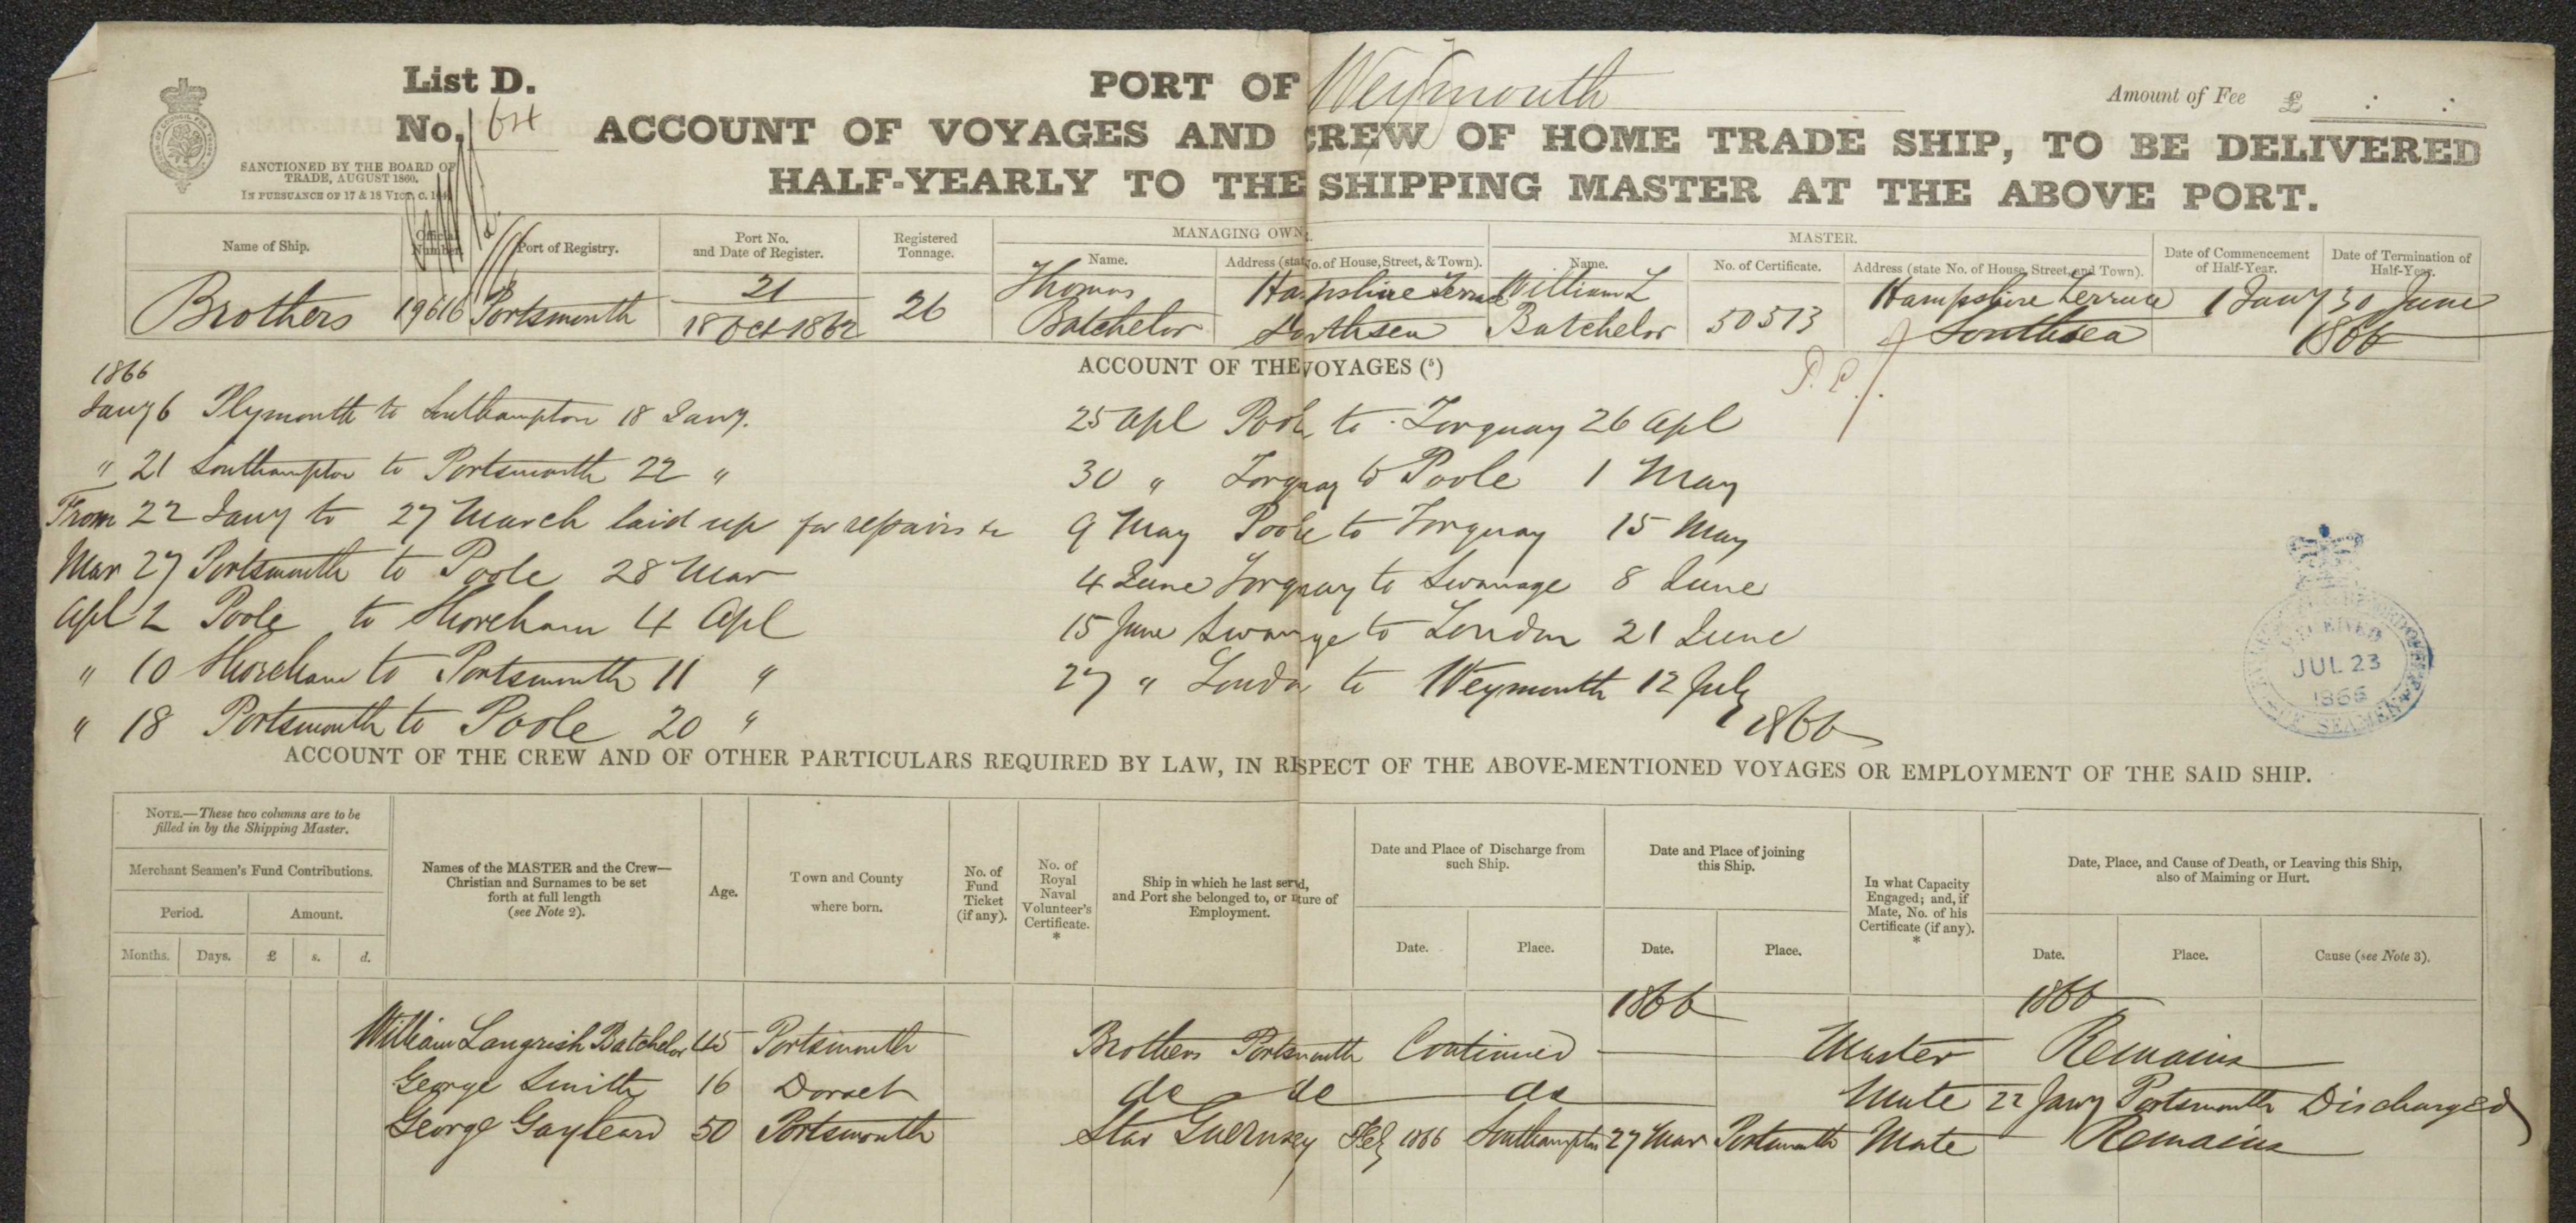 List D.
PORT OF Weymouth
Amount of Fee £ : :
No.
ACCOUNT OF VOYAGES AND CREW OF HOME TRADE SHIP, TO BE DELIVERED
HALF-YEARLY TO THE SHIPPING MASTER AT THE ABOVE PORT.
SANCTIONED BY THE BOARD OF
TRADE, AUGUST 1860.
IN PURSUANCE OF 17 & 18 VICT. C. 104
Name of Ship.
Official Number.
Port of Registry.
Port No. and Date of Register.
Registered Tonnage.
MANAGING OWNER.
Name.
Address (state No. of House, Street, & Town).
MASTER.
Name.
No. of Certificate.
Address (state No. of House, Street, and Town).
Date of Commencement of Half-Year.
Date of Termination of Half-Year.
Brothers 19616 Portsmouth 21 18 Oct 1862 26 Thomas Batchelor Hampshire Terrace Southsea William L Batchelor 50513 Hampshire Terrace Southsea 1 Jany 30 June 1866
ACCOUNT OF THE VOYAGES (5)
1866
Jany 6 Plymouth to Southampton 18 Jany.
" 21 Southampton to Portsmouth 22 "
From 22 Jany to 27 March laid up for repairs &c
Mar 27 Portsmouth to Poole 28 Mar
Apl 2 Poole to Shoreham 4 Apl
" 10 Shoreham to Portsmouth 11 "
" 18 Portsmouth to Poole 20 "
25 Apl Poole to Torquay 26 Apl
30 " Torquay to Poole 1 May
9 May Poole to Torquay 15 May
4 June Torquay to Swanage 8 June
15 June Swanage to London 21 June
27 " London to Weymouth 12 July
1866
RECEIVED
JUL 23
1866
SEAMEN
ACCOUNT OF THE CREW AND OF OTHER PARTICULARS REQUIRED BY LAW, IN RESPECT OF THE ABOVE-MENTIONED VOYAGES OR EMPLOYMENT OF THE SAID SHIP.
NOTE.—These two columns are to be
filled in by the Shipping Master.
Merchant Seamen's Fund Contributions.
Period.
Amount.
Months.
Days.
£
s.
d.
Names of the MASTER and the Crew—
Christian and Surnames to be set
forth at full length
(see Note 2).
Age.
Town and County
where born.
No. of
Fund
Ticket
(if any).
No. of
Royal
Naval
Volunteer's
Certificate.
*
Ship in which he last served,
and Port she belonged to, or nature of
Employment.
Date and Place of Discharge from
such Ship.
Date.
Place.
Date and Place of joining
this Ship.
Date.
Place.
In what Capacity
Engaged; and, if
Mate, No. of his
Certificate (if any).
*
Date, Place, and Cause of Death, or Leaving this Ship,
also of Maiming or Hurt.
Date.
Place.
Cause (see Note 3).
1866 1866
William Langrish Batchelor 45 Portsmouth Brothers Portsmouth Continued Master Remains
George Smith 16 Dorset do do do Mate 22 Jany Portsmouth Discharged
George Gayleard 50 Portsmouth Star Guernsey Feby 1866 Southampton 27 Mar Portsmouth Mate Remains